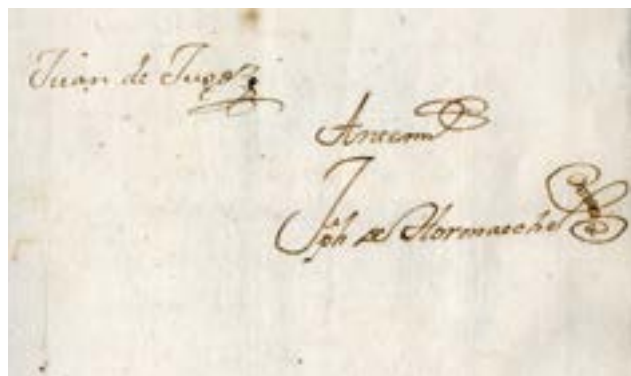 Juan de Jugo
Ante mi
Jph de Hormaeche